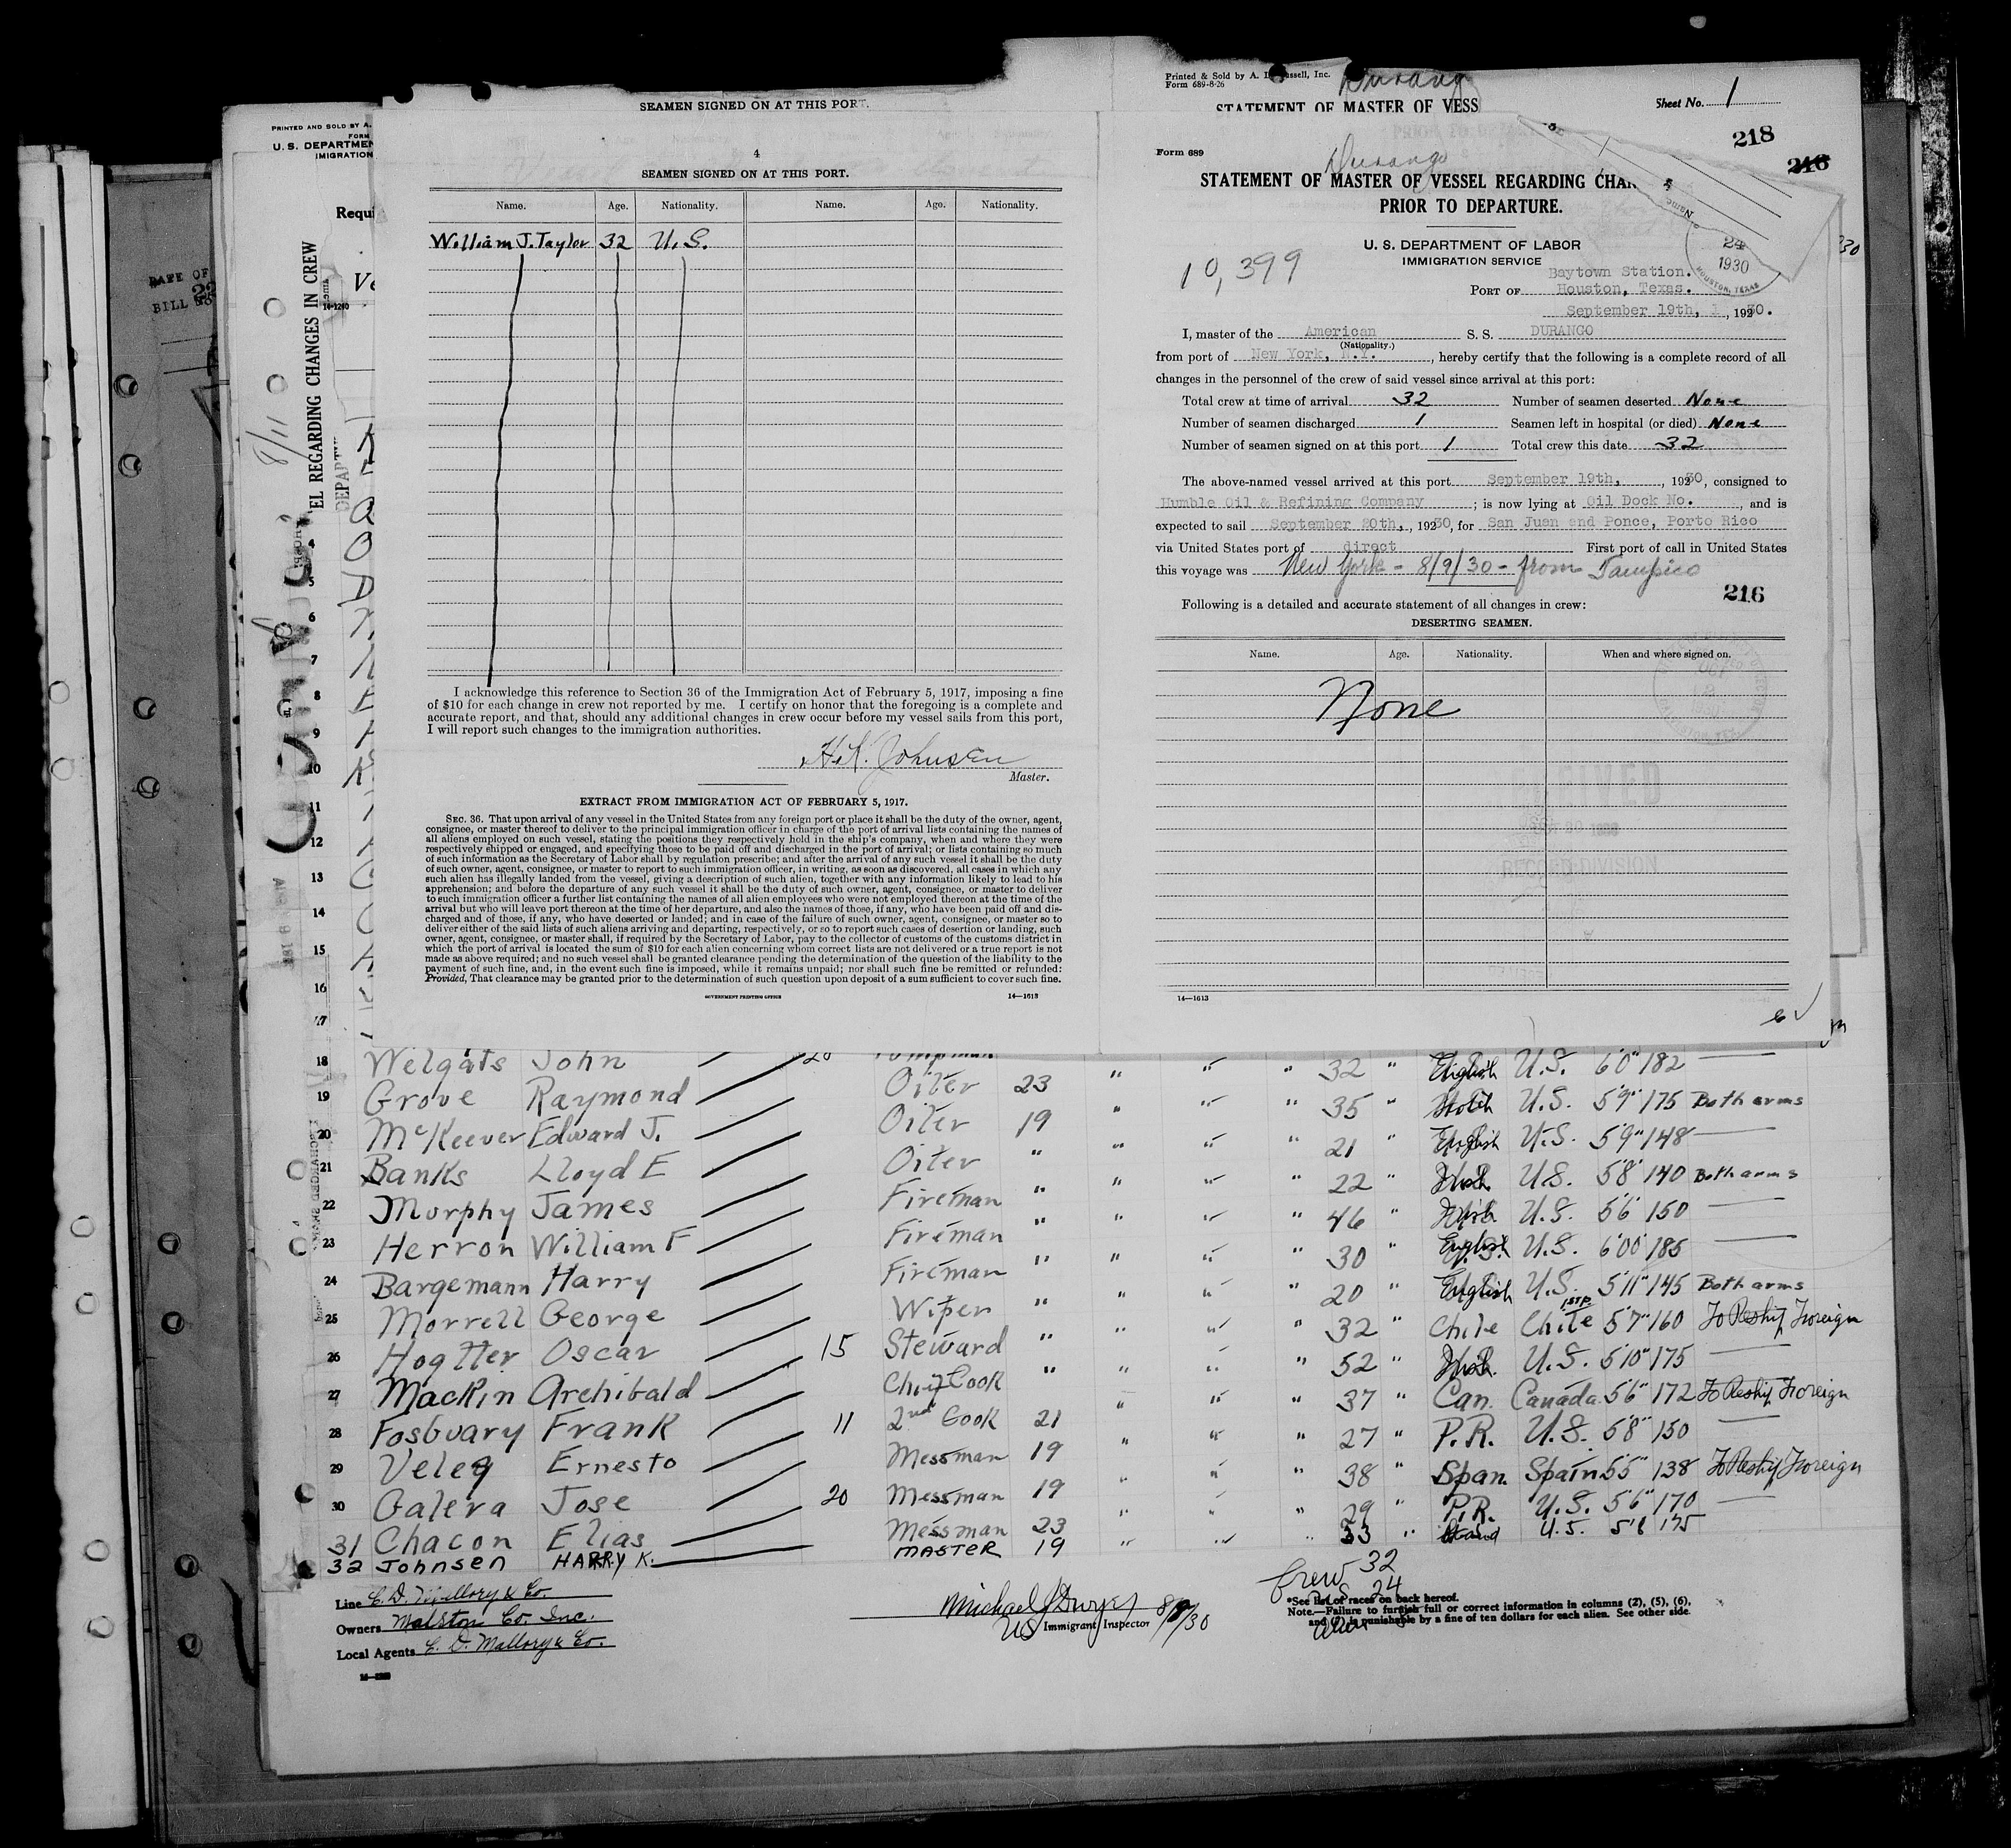 SEAMEN SIGNED ON AT THIS PORT.
4
SEAMEN SIGNED ON AT THIS PORT.
Name. Age. Nationality. Name. Age. Nationality.
William J. Taylor 32 U.S.
I acknowledge this reference to Section 36 of the Immigration Act of February 5, 1917, imposing a fine
of $10 for each change in crew not reported by me. I certify on honor that the foregoing is a complete and
accurate report, and that, should any additional changes in crew occur before my vessel sails from this port,
I will report such changes to the immigration authorities.
H.K. Johnsen
Master.
EXTRACT FROM IMMIGRATION ACT OF FEBRUARY 5, 1917.
SEC. 36. That upon arrival of any vessel in the United States from any foreign port or place it shall be the duty of the owner, agent,
consignee, or master thereof to deliver to the principal immigration officer in charge of the port of arrival lists containing the names of
all aliens employed on such vessel, stating the positions they respectively hold in the ship's company, when and where they were
respectively shipped or engaged, and specifying those to be paid off and discharged in the port of arrival; or lists containing so much
of such information as the Secretary of Labor shall by regulation prescribe; and after the arrival of any such vessel it shall be the duty
of such owner, agent, consignee, or master to report to such immigration officer, in writing, as soon as discovered, all cases in which any
such alien has illegally landed from the vessel, giving a description of such alien, together with any information likely to lead to his
apprehension; and before the departure of any such vessel it shall be the duty of such owner, agent, consignee, or master to deliver
to such immigration officer a further list containing the names of all alien employees who were not employed thereon at the time of the
arrival but who will leave port thereon at the time of her departure, and also the names of those, if any, who have been paid off and dis-
charged and of those, if any, who have deserted or landed; and in case of the failure of such owner, agent, consignee, or master so to
deliver either of the said lists of such aliens arriving and departing, respectively, or so to report such cases of desertion or landing, such
owner, agent, consignee, or master shall, if required by the Secretary of Labor, pay to the collector of customs of the customs district in
which the port of arrival is located the sum of $10 for each alien concerning whom correct lists are not delivered or a true report is not
made as above required; and no such vessel shall be granted clearance pending the determination of the question of the liability to the
payment of such fine, and, in the event such fine is imposed, while it remains unpaid; nor shall such fine be remitted or refunded:
Provided, That clearance may be granted prior to the determination of such question upon deposit of a sum sufficient to cover such fine.
GOVERNMENT PRINTING OFFICE 14—1613
Printed & Sold by A. ussell, Inc.
Form 689-8-26
Durango
STATEMENT OF MASTER OF VESS
Sheet No. 1
218
216
Form 689
Durango
STATEMENT OF MASTER OF VESSEL REGARDING CHAN
PRIOR TO DEPARTURE.
U. S. DEPARTMENT OF LABOR
IMMIGRATION SERVICE
10,399
24
1930
HOUSTON, TEXAS
Baytown Station.
PORT OF Houston, Texas.
September 19th, 1930.
I, master of the American S. S. DURANGO
(Nationality.)
from port of New York, N.Y. , hereby certify that the following is a complete record of all
changes in the personnel of the crew of said vessel since arrival at this port:
Total crew at time of arrival 32 Number of seamen deserted None
Number of seamen discharged 1 Seamen left in hospital (or died) None
Number of seamen signed on at this port 1 Total crew this date 32
The above-named vessel arrived at this port September 19th, , 1930, consigned to
Humble Oil & Refining Company ; is now lying at Oil Dock No. , and is
expected to sail September 20th, , 1930, for San Juan and Ponce, Porto Rico
via United States port of direct First port of call in United States
this voyage was New York - 8/9/30 - from Tampico
216
Following is a detailed and accurate statement of all changes in crew:
DESERTING SEAMEN.
Name. Age. Nationality. When and where signed on.
None
14—1613
PRINTED AND SOLD BY A.
FORM
U. S. DEPARTMEN
IMIGRATION
Requi
EL REGARDING CHANGES IN CREW
8/11
4
5
6
7
8
9
10
11
12
13
14
15
16
17
18 Welgats John 20 32 " English U.S. 6'0" 182
19 Grove Raymond Oiler 23 " " " 35 " U.S. 5'9" 175 Both arms
20 McKeever Edward J. Oiler 19 " " " 21 " English U.S. 5'9" 148
21 Banks Lloyd E Oiler " " " " 22 " U.S. 5'8" 140 Both arms
22 Murphy James Fireman " " " " 46 " Irish U.S. 5'6" 150
23 Herron William F Fireman " " " " 30 " English U.S. 6'00" 185
24 Bargemann Harry Fireman " " " " 20 " English U.S. 5'11" 145 Both arms
25 Morrell George Wiper " " " " 32 " Chile Chile 5'7" 160 To Reship Foreign
26 Hogtter Oscar 15 Steward " " " " 52 " U.S. 5'10" 175
27 Mackin Archibald Chief Cook " " " " 37 " Can. Canada 5'6" 172 To Reship Foreign
28 Fosbuary Frank 11 2nd Cook 21 " " " 27 " P.R. U.S. 5'8" 150
29 Veleg Ernesto Messman 19 " " " 38 " Span. Spain 5'5" 138 To Reship Foreign
30 Galera Jose 20 Messman 19 " " 29 " P.R. U.S. 5'6" 170
31 Chacon Elias Messman 23 33 " U.S. 5'8 175
32 Johnsen HARRY K. MASTER 19
Line C. D. Mallory & Co.
Owners Malston Co. Inc.
Local Agents C. D. Mallory & Co.
Michael J Dwyer 8/9/30
US Immigrant Inspector
Crew 32
U.S. 24
*See list of races on back hereof.
Note.—Failure to furnish full or correct information in columns (2), (5), (6),
and (7) is punishable by a fine of ten dollars for each alien. See other side.